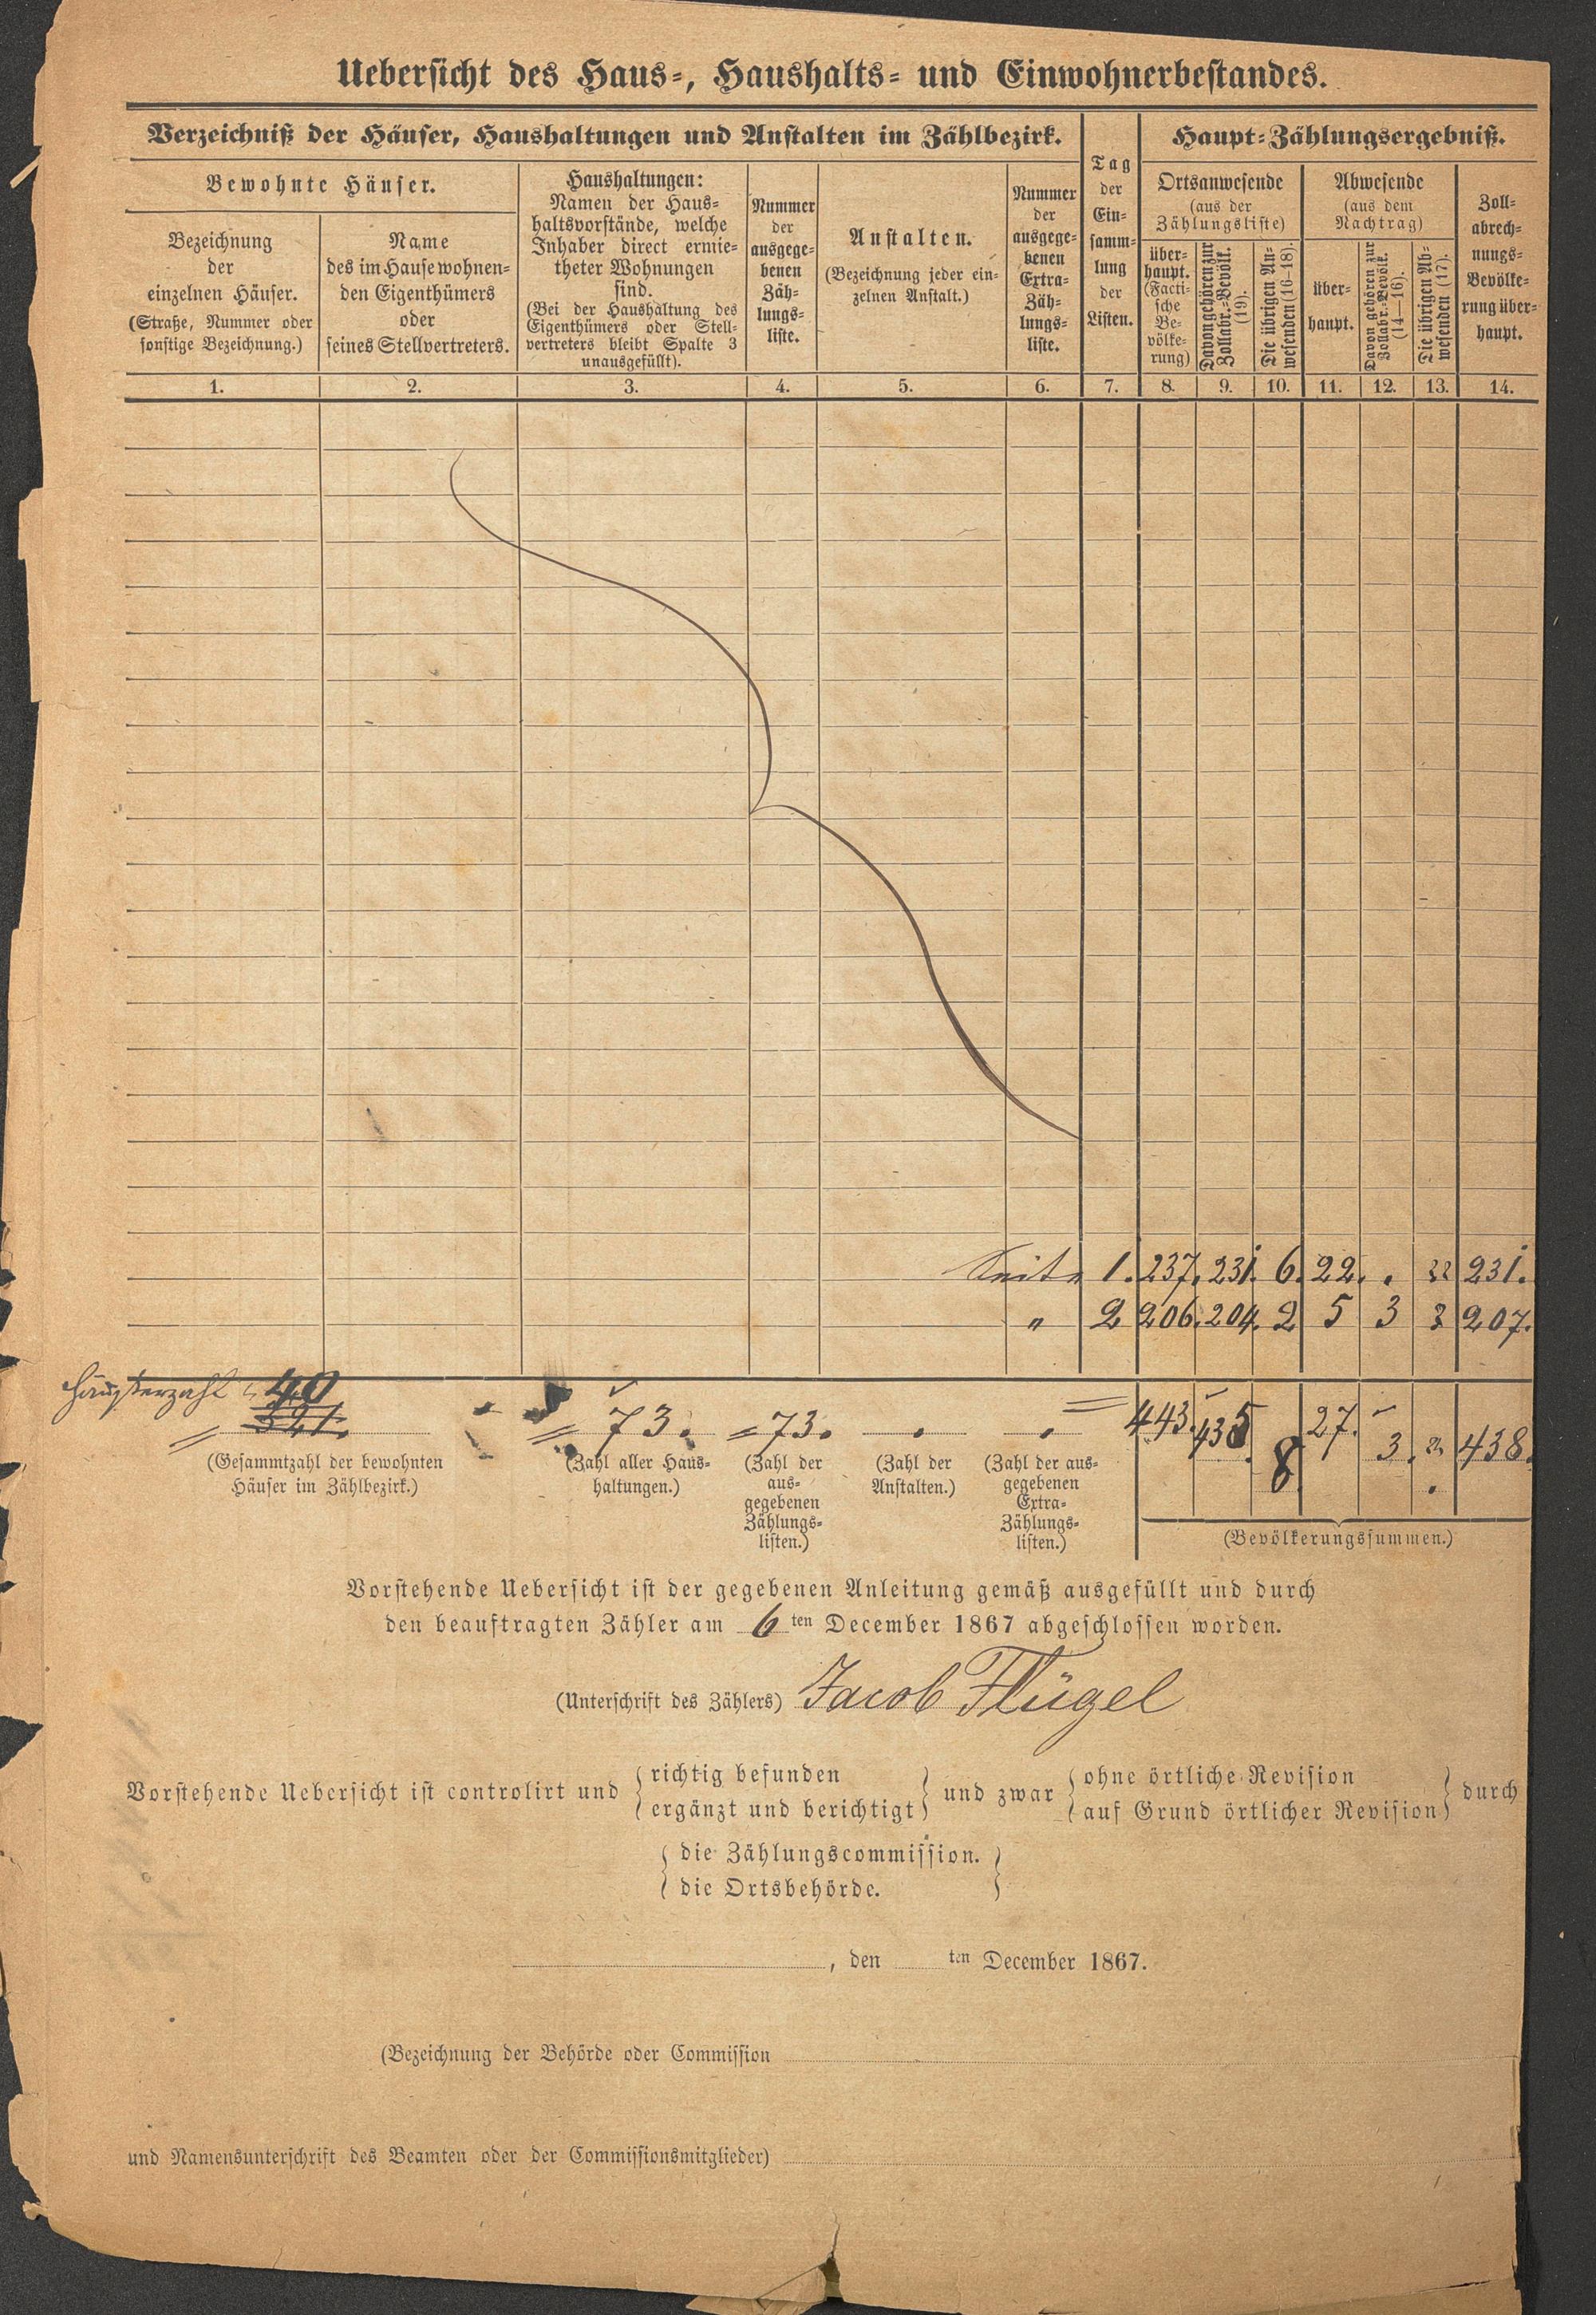 Uebersicht des Haus-, Haushalts- und Einwohnerbestandes.
Verzeichniß der Häuser, Haushaltungen und Anstalten im Zählbezirk.
Bewohnte Häuser.
Bezeichnung
der
einzelnen Häuser.
(Straße, Nummer oder
sonstige Bezeichnung.)
Name
des im Hause wohnen-
den Eigenthümers
oder
seines Stellvertreters.
Haushaltungen:
Namen der Haus-
haltsvorstände, welche
Inhaber direct ermie-
theter Wohnungen
sind.
(Bei der Haushaltung des
Eigenthümers oder Stell-
vertreters bleibt Spalte 3
unausgefüllt).
Nummer
der
ausgege-
benen
Zäh-
lungs-
liste.
Anstalten.
(Bezeichnung jeder ein-
zelnen Anstalt.)
Nummer
der
ausgege-
benen
Extra-
Zäh-
lungs-
liste.
Tag
der
Ein-
samm-
lung
der
Listen.
Haupt-Zählungsergebniß.
Ortsanwesende
(aus der
Zählungsliste)
über-
haupt.
(Facti-
sche
Be-
völke-
rung)
Davon gehören zur
Zollabr.-Bevölk.
(19).
Die übrigen An-
wesenden (16—18).
Abwesende
(aus dem
Nachtrag)
über-
haupt.
Davon gehören zur
Zollabr.-Bevölk.
(14—16).
Die übrigen Ab-
wesenden (17).
Zoll-
abrech-
nungs-
Bevölke-
rung über-
haupt.
1. 2. 3. 4. 5. 6. 7. 8. 9. 10. 11. 12. 13. 14.
Seite 1. 237. 231. 6. 22. . 22 231.
" 2 206. 204. 2 5 3 2 207.
Häuserzahl 40
= 321.
= 73. = 73. . . 443. 435. 8 27. 3. 438.
(Gesammtzahl der bewohnten
Häuser im Zählbezirk.)
(Zahl aller Haus-
haltungen.)
(Zahl der
aus-
gegebenen
Zählungs-
listen.)
(Zahl der
Anstalten.)
(Zahl der aus-
gegebenen
Extra-
Zählungs-
listen.)
(Bevölkerungssummen.)
Vorstehende Uebersicht ist der gegebenen Anleitung gemäß ausgefüllt und durch
den beauftragten Zähler am 6 ten December 1867 abgeschlossen worden.
(Unterschrift des Zählers) Jacob Flügel
Vorstehende Uebersicht ist controlirt und { richtig befunden
ergänzt und berichtigt } und zwar { ohne örtliche Revision
auf Grund örtlicher Revision } durch
{ die Zählungscommission.
die Ortsbehörde. }
, den ten December 1867.
(Bezeichnung der Behörde oder Commission
und Namensunterschrift des Beamten oder der Commissionsmitglieder)